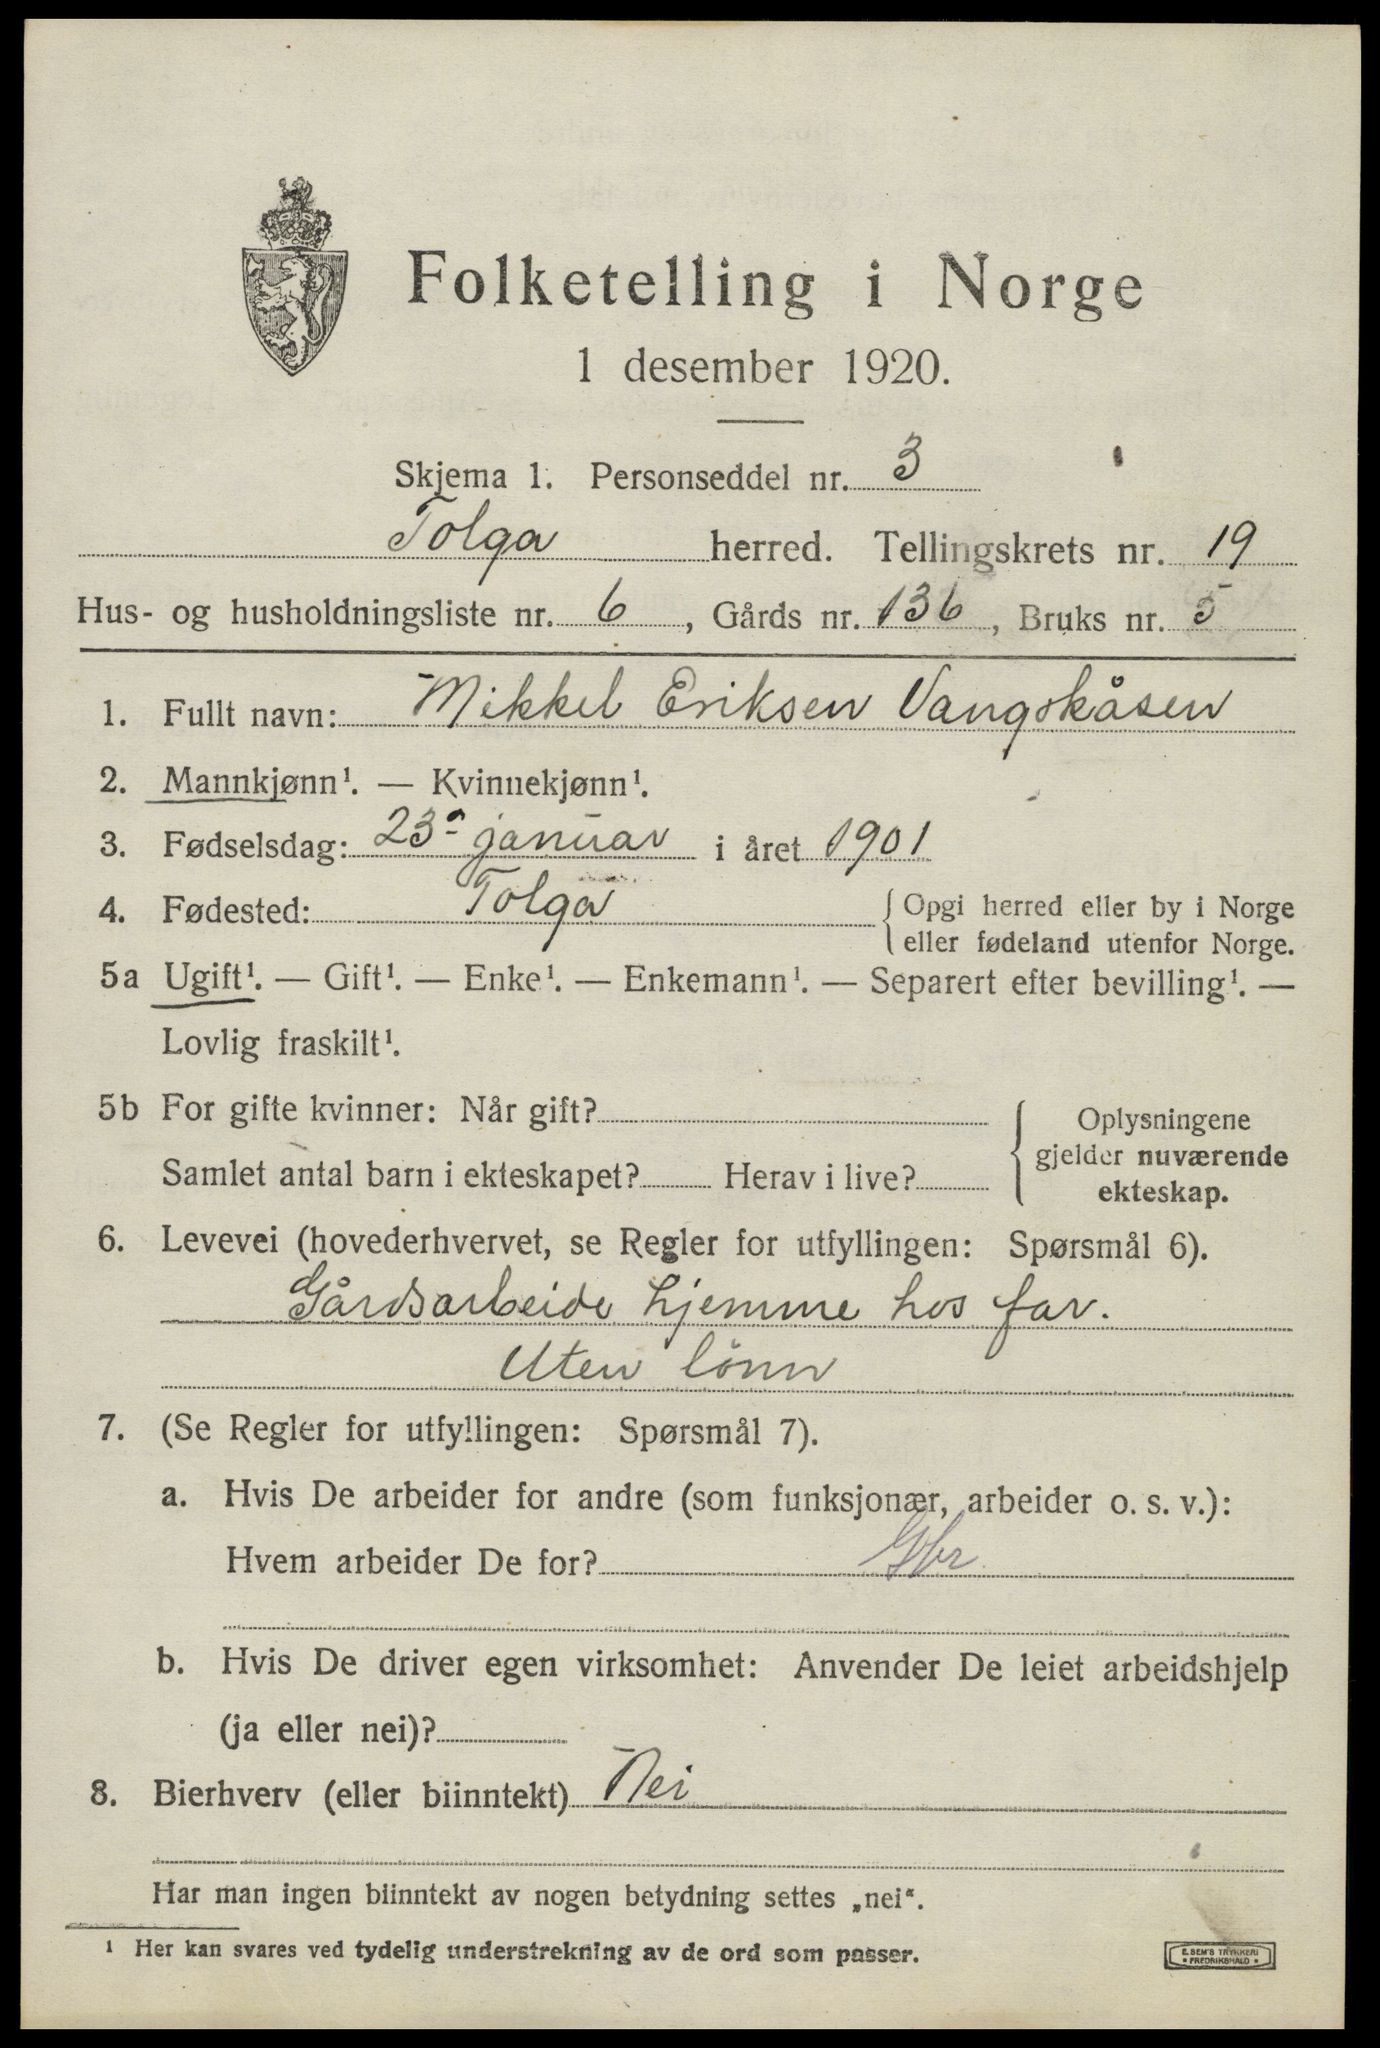 Folketelling i Norge
1 desember 1920.
Skjema 1. Personseddel nr. 3
Tolga herred. Tellingskrets nr. 19
Hus- og husholdningsliste nr. 6, Gårds nr. 136, Bruks nr. 5
1. Fullt navn: Mikkel Eriksen Vangskåsen
2. Mannkjønn¹. — Kvinnekjønn¹.
3. Fødselsdag: 23 januar i året 1901
4. Fødested: Tolga { Opgi herred eller by i Norge
eller fødeland utenfor Norge.
5a Ugift¹. — Gift¹. — Enke¹. — Enkemann¹. — Separert efter bevilling¹. —
Lovlig fraskilt¹.
5b For gifte kvinner: Når gift?
Samlet antal barn i ekteskapet? Herav i live?
{ Oplysningene
gjelder nuværende
ekteskap.
6. Levevei (hovederhvervet, se Regler for utfyllingen: Spørsmål 6).
Gårdsarbeide hjemme hos far.
Uten lönn
7. (Se Regler for utfyllingen: Spørsmål 7).
a. Hvis De arbeider for andre (som funksjonær, arbeider o. s. v.):
Hvem arbeider De for? Gbr
b. Hvis De driver egen virksomhet: Anvender De leiet arbeidshjelp
(ja eller nei)?
8. Bierhverv (eller biinntekt) Nei
Har man ingen biinntekt av nogen betydning settes „nei“.
¹ Her kan svares ved tydelig understrekning av de ord som passer.
E. SEM'S TRYKKERI
• FREDRIKSHALD •